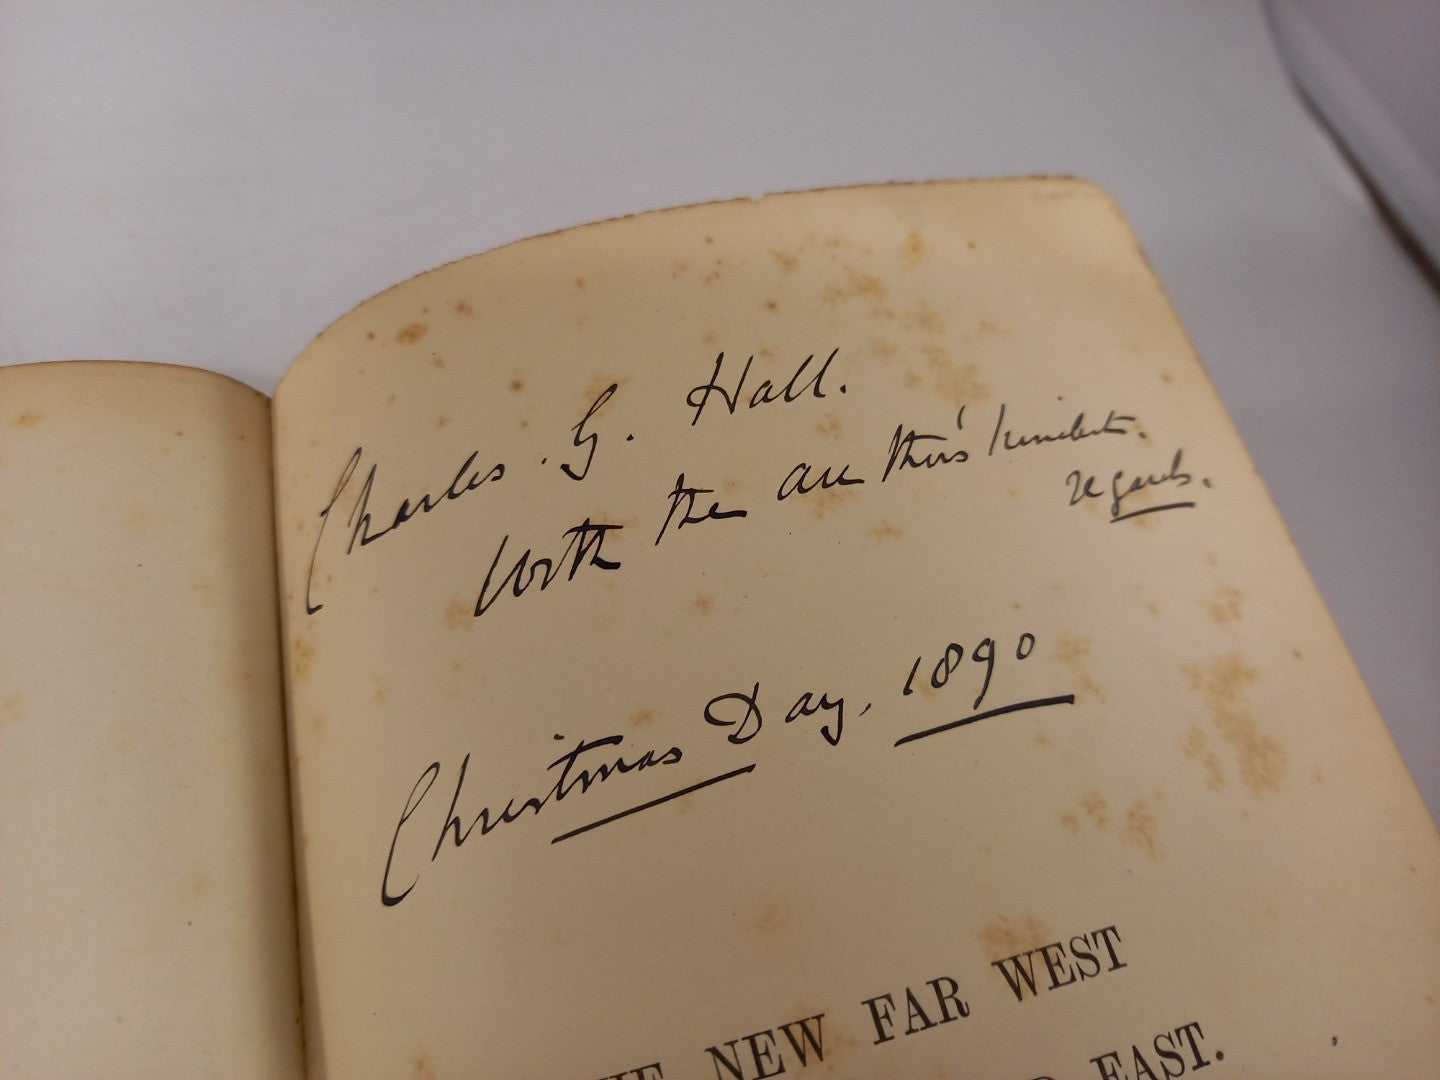 Charles. G. Hall.
With the author's kindest.
regards.
Christmas Day, 1890
THE NEW FAR WEST
EAST.